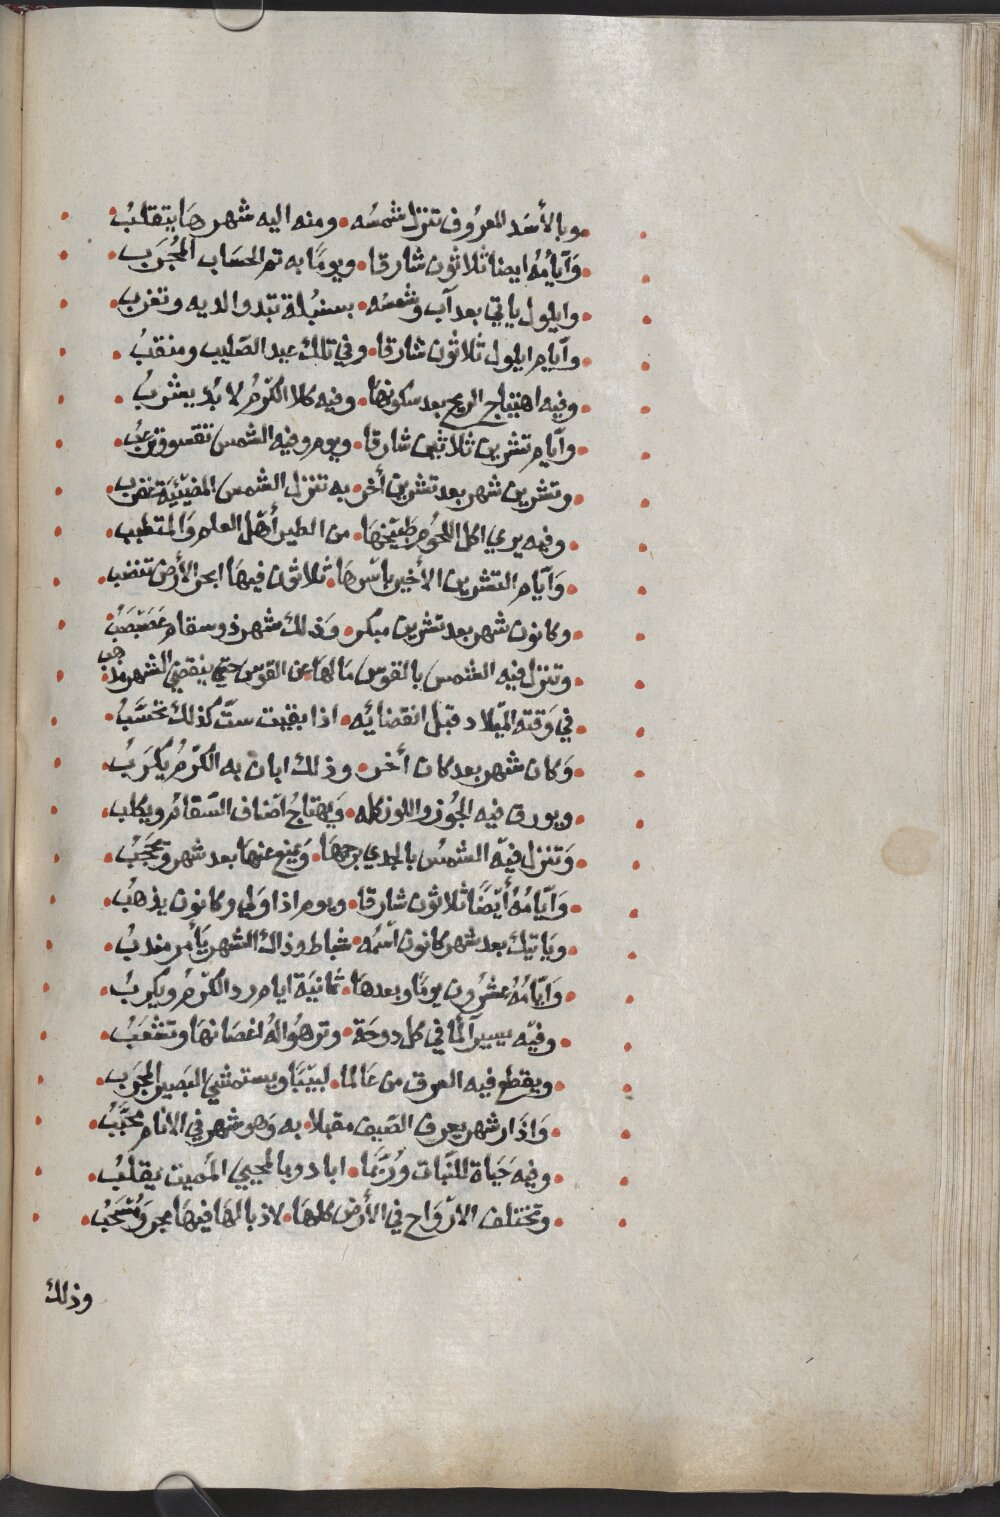 وبالأسَد المعرُوف تنزل شمسُه • ومنه اليه شهرهَا يتقلبُ
وَآيامُهُ ايضا ثلاثون شارقا • ويومًا به تم الحسَاب المُجرَب
وايلول ياتي بعد آب وشمسَه • بسنبُلة تبدوا لديه وتغرب
وآيام ايلول ثلاثون شارقا • وفي تلك عيد الصَليب ومنقبُ
وفيه اهتياج الريح بعد سكونهَا • وفيه كلا الكرْمُ لا بُد يعثربُ
وآيام تشرين ثلاثين شارقا • ويوم وفيه الشمس تقسو وترعبُ
وتشرين شهر بعد تشرين أخر • به تنزل الشمس المضيئيَة عقرب
وفيه يري اكل اللحُوم طبيخهَا • من الطير أهل العلم وَالمتطبب
وَآيام التشرين الأخير باسرهَا • ثلاثون فيهَا ابحر الأرض تنضب
وكانون شهر بعد تشرين مبكر • وَذلك شهر ذو سقام عَصَبصَبُ
وتنزل فيه الشمس بالقوس مَالهَا • عن القوس حتي ينقضي الشهر مذهب
في وَقته الميلاد قبل انقضائه • اذا بقيت ستّ كذلك تحسَّبُ
وَكان شهر بعد كان أخر • وذلك ابان به الكرْمُ يكرَبُ
ويورق فيه الجُوز واللوز كله • وَيهتاجُ اصَناف السّقام ويكلب
وَتنزل فيّه الشمسُ بالجدي برجهَا • وَيمنع عنهَا بعد شهر وتحجَبُ
وَآيّامُهُ أيْضًا ثلاثون شارقا • ويوم اذا ولي وكانون يذهبُ
وَياتيك بعد شهر كانون اسمُه • شباط وذاك الشهر يَأمر مندبُ
وَآيّامُهُ عشرُون يومًا وبعدهَا • ثمانيَة ايام رد الكرْمُ ويكربُ
وفيّه يسير المًا في كل دوحَة • وترهوُ الهُ اغصَانهَا وتشعَبُ
ويقطع فيه العرق من عَالما • لبيبًا ويستمشي البَصير المجرب
وَاذَار شهر يعرف الصَيف مقبلا • به وَهو شهر في الانام محبَّبُ
وفيه حَيَاة للنّبات وَرُبّمَا • ابادو بالمحيي المَميت يقلبُ
وتختلف الارْوَاح في الأرض كلهَا • لاذبالهَا فيهَا مجر وَمُسْحَبُ
وذلك